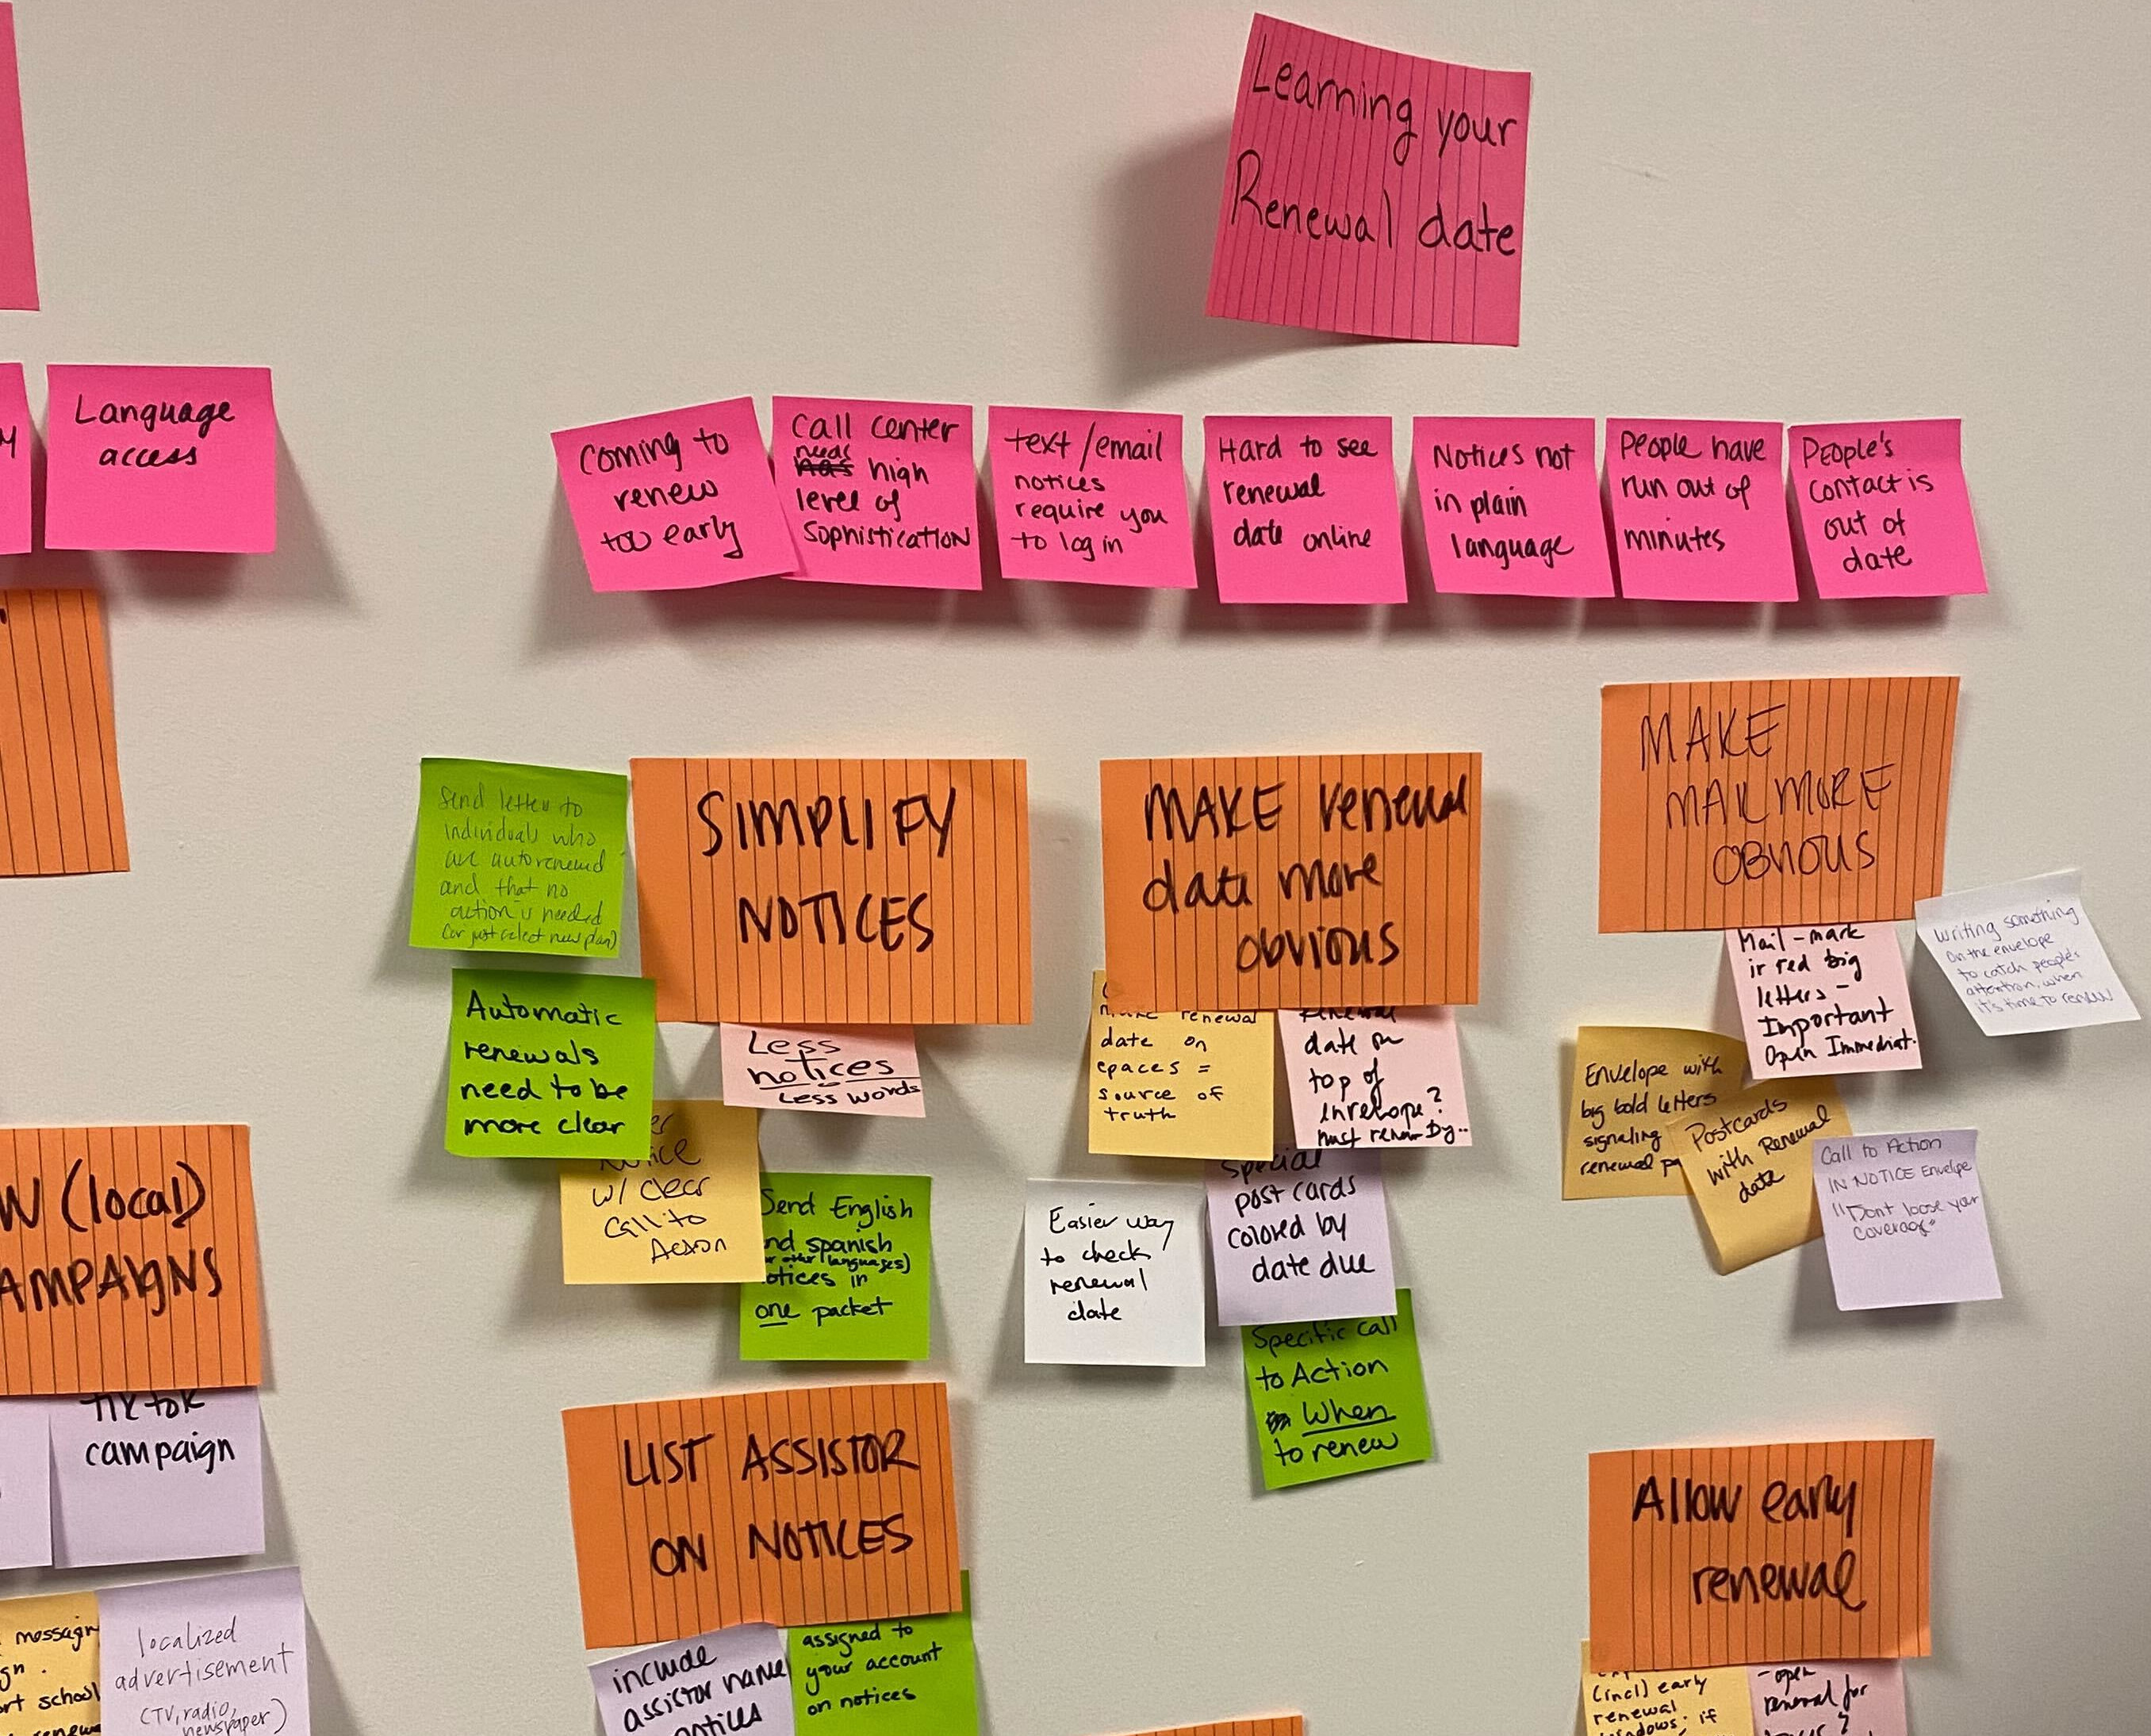 Learning your
Renewal date
Language
access
Coming to
renew
too early
Call center
needs
has high
level of
Sophistication
text/email
notices
require you
to log in
Hard to see
renewal
date online
Notices not
in plain
language
People have
run out of
minutes
People's
contact is
out of
date
Send letter to
individuals who
are autorenewed
and that no
action is needed
(or just select new plan)
SIMPLIFY
NOTICES
Automatic
renewals
need to be
more clear
Less
notices
Less words
notice
w/ clear
Call to
Action
Send English
and spanish
(or other languages)
notices in
one packet
MAKE renewal
date more
obvious
make renewal
date on
epaces =
source of
truth
renewal
date on
top of
envelope?
must renew By..
Easier way
to check
renewal
date
Special
post cards
colored by
date due
Specific call
to Action
When
to renew
MAKE
MAIL MORE
OBVIOUS
Mail - mark
in red big
letters -
Important
Open Immediat.
Writing something
on the envelope
to catch people's
attention, when
it's time to renew
Envelope with
big bold letters
signaling
renewal
Postcards
with Renewal
date
Call to Action
IN NOTICE Envelope
"Dont loose your
coverage"
W (local)
AMPAIGNS
TikTok
campaign
messagin
gn.
ort school
renewa
localized
advertisement
(TV, radio,
newspaper)
LIST ASSISTOR
ON NOTICES
include
assistor name
notices
assigned to
your account
on notices
Allow early
renewal
(incl) early
renewal
windows. if
- open
renewal for